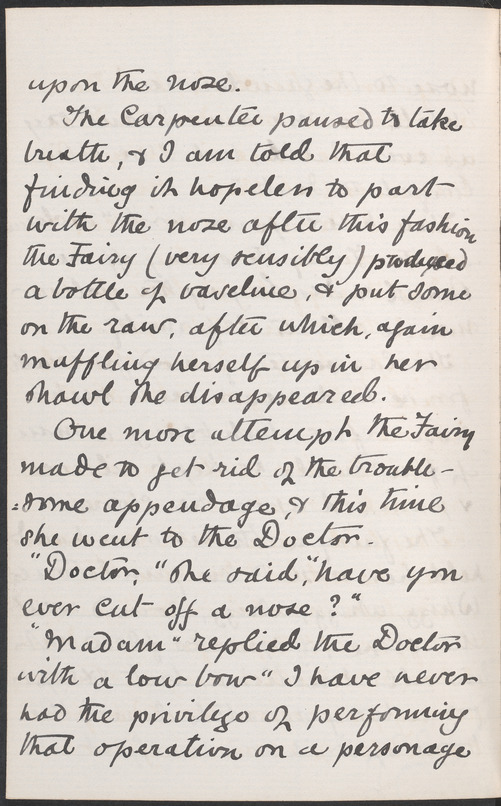 upon the nose.
The Carpenter paused to take
breath, & I am told that
finding it hopeless to part
with the nose after this fashion
the Fairy (very sensibly) produced
a bottle of vaseline, & put some
on the raw, after which, again
muffling herself up in her
shawl she disappeared.
One more attempt the Fairy
made to get rid of the trouble-
=some appendage, & this time
she went to the Doctor.
"Doctor," she said, "have you
ever cut off a nose?"
"Madam" replied the Doctor
with a low bow "I have never
had the privilege of performing
that operation on a personage